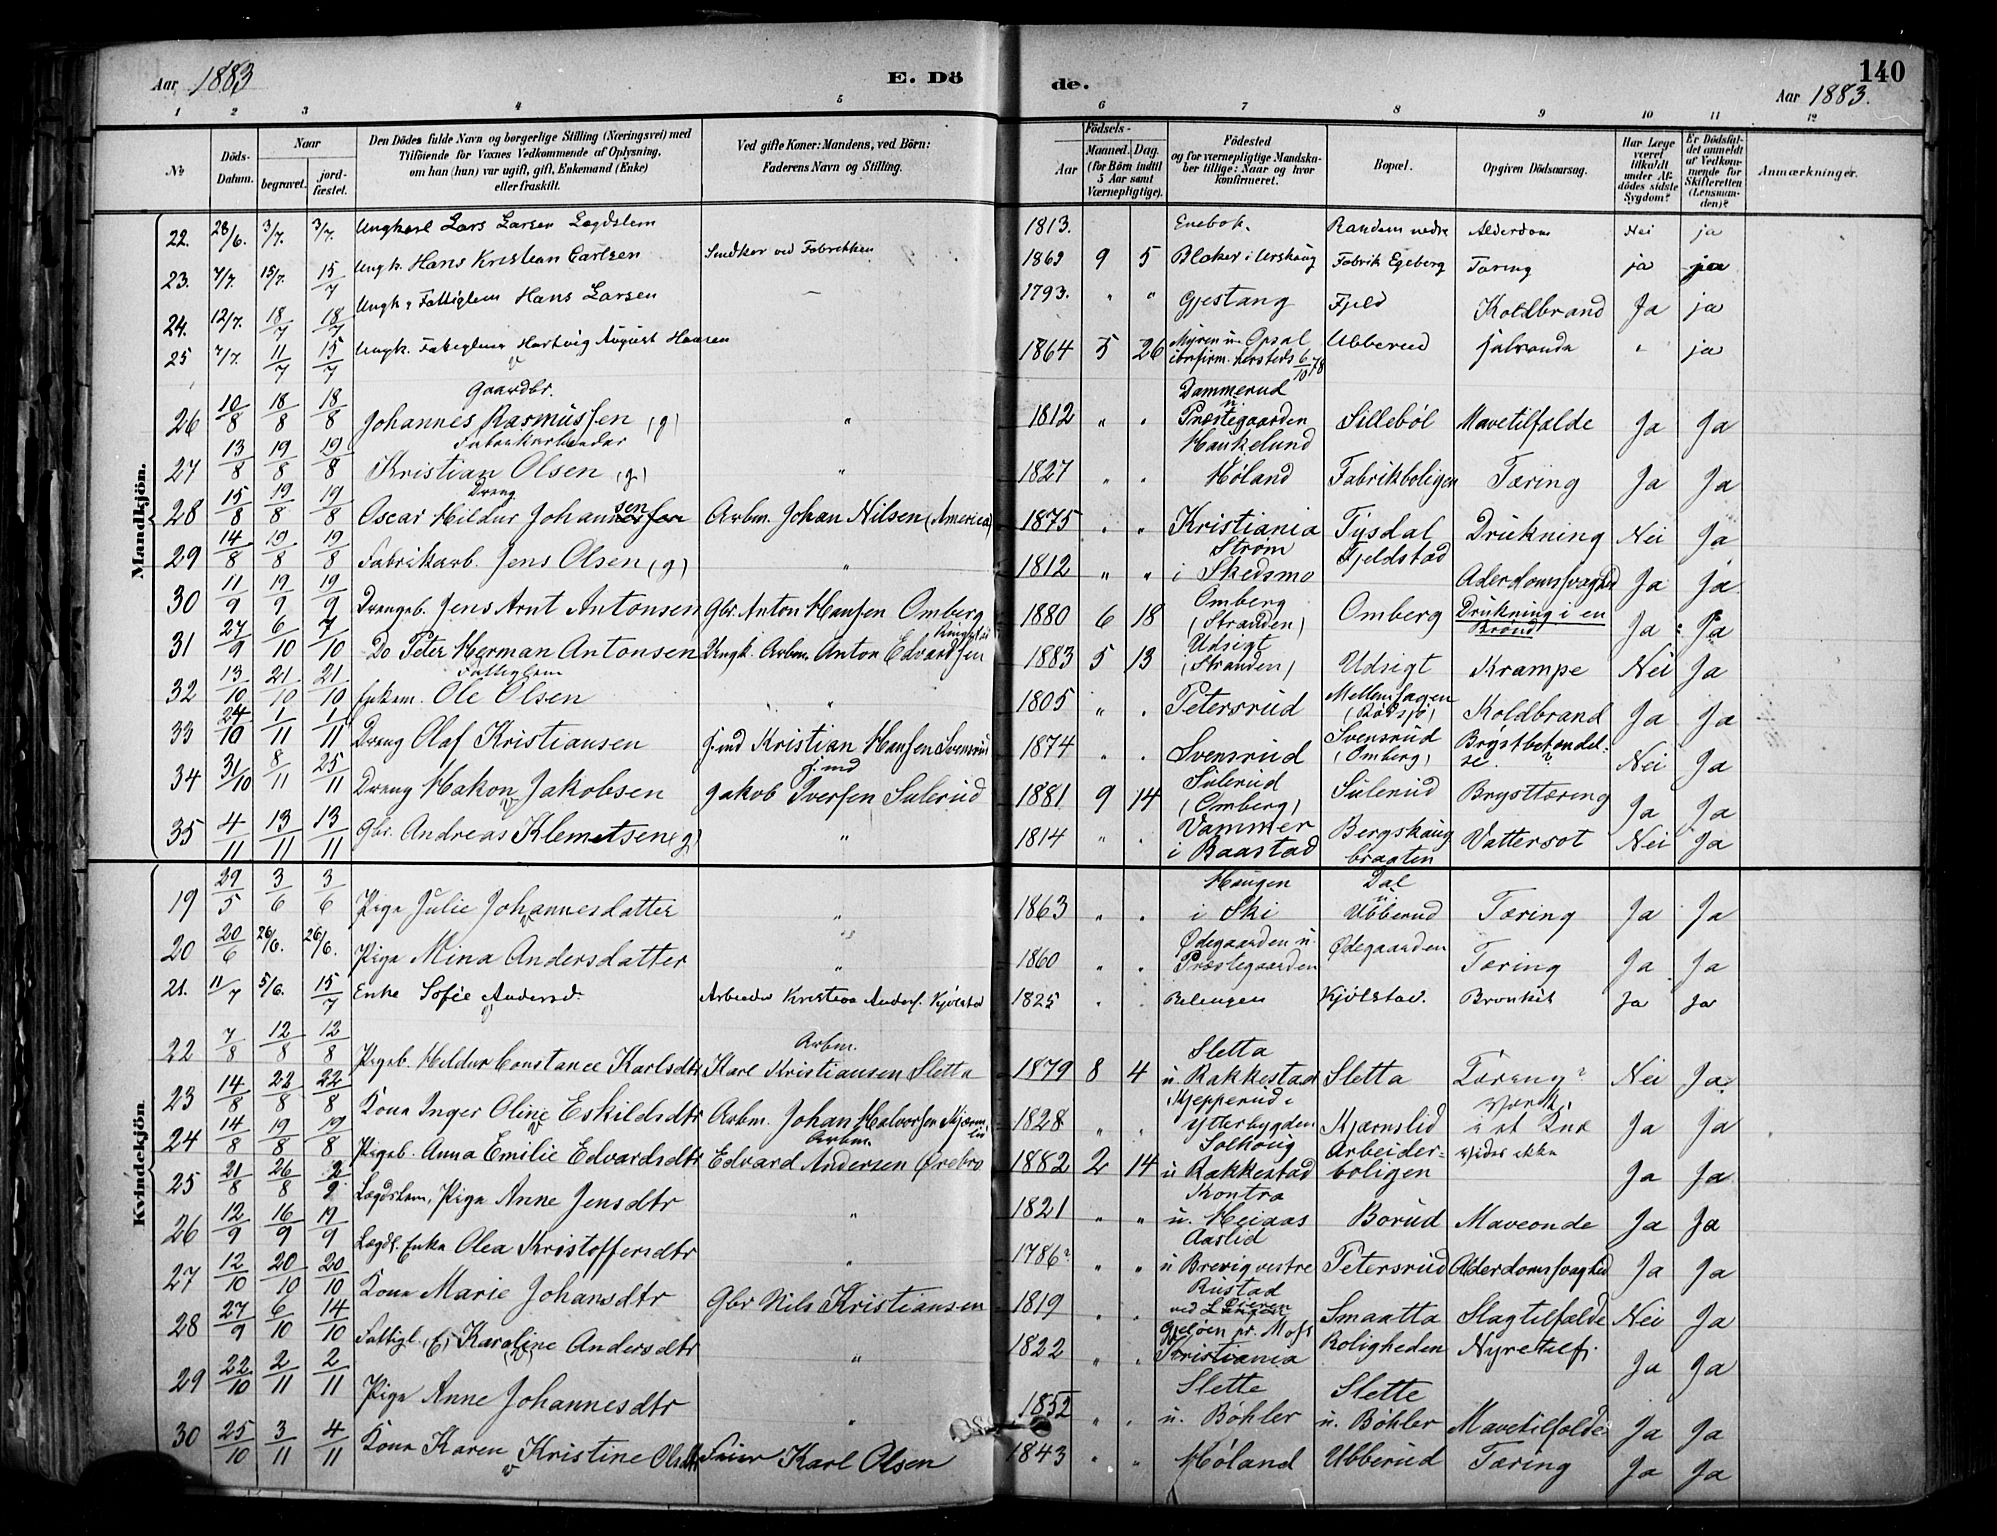 Aar 1883 E. Dö de. 140
Aar 1883.
1 2 3 4 5 6 7 8 9 10 11 12
No
Döds-Datum.
Naar begravet. jordfæstet.
Den Dödes fulde Navn og borgerlige Stilling (Næringsvei) med
Tilföiende for Voxnes Vedkommende af Oplysning,
om han (hun) var ugift, gift, Enkemand (Enke)
eller fraskilt.
Ved gifte Koner: Mandens, ved Börn:
Faderens Navn og Stilling.
Födsels-
Aar Maaned. Dag.
(for Börn indtil 5 Aar samt Værnepligtige).
Födested
og for værnepligtige Mandskaber tillige: Naar og hvor konfirmeret.
Bopæl.
Opgiven Dödsaarsag.
Har Læge været tilkaldt under Afdödes sidste Sygdom?
Er Dödsfaldet anmeldt af Vedkommende for Skifteretten (Lensmanden)?
Anmærkninger.
Mandkjön.
22. 28/6. 3/7. 3/7. Ungkarl Lars Larsen Lægdslem 1813. Eneb. Randem nedre Alderdom Nei ja
23. 7/7. 15/7. 15/7 Ungk. Hans Kristian Carlsen Snedker ved Fabrikken 1862 9 5 Blaker i Urskoug Fabrik Egeberg Tæring ja ja
24. 12/7. 18/7 18/7 Ungk. Fattiglem Hans Larsen — 1793. " " Gjestang Fjeld Koldbrand Ja ja
25 7/7. 11/7 15/7 Ungk. Hartvig August Hansen 1864 5 26 Myren u. Opsal 6/10 78 Ubberud " ja
26 10/8 18/8 18/8 Gaardbr. Johannes Rasmussen (g) " 1812 " " Dammerud u. Præstegaarden Sillebøl Mavetilfælde Ja Ja
27 13/8 19/8 19/8 Fabrikarbeider Kristian Olsen (g) " 1827 " " Haukelund Høland Fabrikboligen Tæring Ja Ja
28 15/8 19/8 19/8 Dreng Oscar Hildur Johansen Arbm. Johan Nilsen (America) 1875 " " Kristiania Tysdal Drukning Nei Ja
29 14/8 19/8 19/8 Fabrikarb. Jens Olsen (g) " 1812 " " Strøm i Skedsmo Fjeldstad Alderdomssvaghed Ja Ja
30 11/9 19/9 19/9 Drengeb. Jens Arnt Antonsen Gbr. Anton Hansen Omberg 1880 6 18 Omberg (Stranden) Omberg Drukning i en Brønd Ja Ja
31 27/9 6/10 7/10 Do Peter Herman Antonsen Ungk. Arbm. Anton Edvardsen 1883 5 13 Udsigt (Stranden) Udsigt Krampe Nei Ja
32 13/10 21/10 21/10 Fattiglem Enkem. Ole Olsen " 1805 " " Petersrud Mellemhagen Koldbrand Ja Ja
33 24/10 1/11 1/11 Dreng Olaf Kristiansen Kristian Hansen Svensrud 1874 " " Svensrud Svensrud (Omberg) Brystbetændelse? Nei Ja
34 31/10 8/11 25/11 Dreng Hakon Jakobsen Jakob Iversen Sulerud 1881 9 14 Sulerud (Omberg) Sulerud Brysttæring Ja Ja
35 4/11 13/11 13/11 Gbr. Andreas Klemetsen (g) " 1814 " " Vammer i Baastad Bergskaugbraaten Vattersot Nei Ja
Kvindekjön.
19 29/5 3/6 3/6 Pige Julie Johannesdatter " 1863 " " Haugen i Ski Dal u. Ubberud Tæring Ja Ja
20 20/6 26/6. 26/6. Pige Mina Andersdatter " 1860 " " Ødegaarden u. Præstegaarden Ødegaarden Tæring Ja Ja
21. 11/7 5/6. 15/7 Enke Sofie Andersd. Arbeider Kristian Anders. Kjølstad 1825 " Kjølstad. Bronkit Ja Ja
22 7/8 12/8 12/8 Pigeb. Hildur Constance Karlsdtr Arbm. Karl Kristiansen Sletta 1879 8 4 Sletta u. Rakkestad Sletta Tæring? Nei Ja
23 14/8 22/8 22/8 Kone Inger Oline Eskildsdtr Arbm. Johan Halvorsen Kjærnslid 1828 " " Kjepperud i Ytterbygden Kjærnslid Værk i et Knæ Ja Ja
24 14/8 19/8 19/8 Pigeb. Anna Emilie Edvardsdtr Arbm. Edvard Andersen Ørebro 1882 2 14 Solhoug u. Rakkestad Arbeiderboligen vides ikke Ja Ja
25 21/8 26/8 2/9 Lægdslem, Pige Anne Jensdtr " 1821 " " Kontra u. Heiaas Borud Maveonde Ja Ja
26 12/9 16/9 19/9 Lægdl. Enke Olea Kristoffersdtr " 1786? " " Aaslid u. Brevig vestre Petersrud Alderdomssvaghed Ja Ja
27 12/10 20/10 20/10 Kone Marie Johansdtr Gbr Nils Kristiansen 1819 " " Rustad ved Øieren Smaatta Slagtilfælde Nei Ja
28 27/9 6/10 14/10 Fattigl. (E) Karoline Andersdtr " 1822 " " Gjeløen pr. Moss Kristiania Roligheden Nyretilf. Ja Ja
29 22/10 2/11 2/11 Pige Anne Johannesdtr " 1852 " " Slette u. Bøhler Slette u. Bøhler Mavetilfælde Ja Ja
30 25/10 3/11 4/11 Kone Karen Kristine Olsdtr Karl Olsen 1843 " " Høland Ubberud Tæring Ja Ja